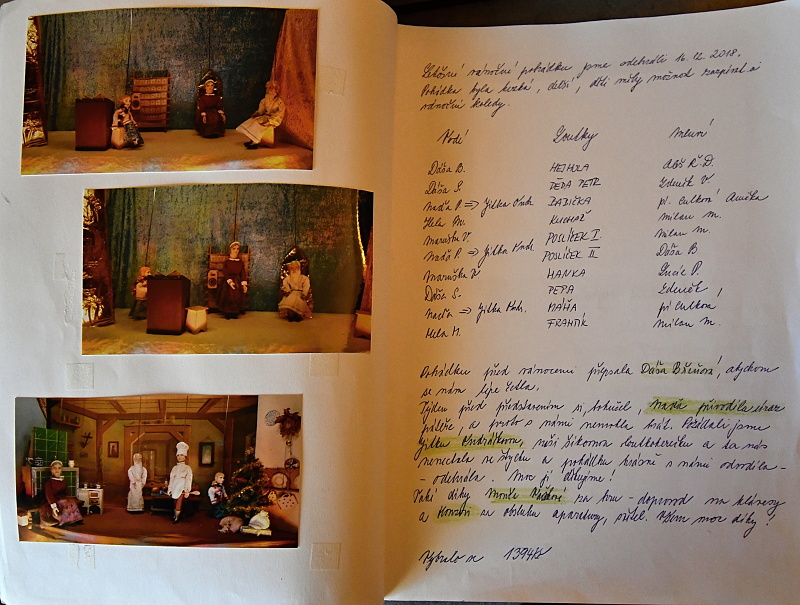 Letošní vánoční pohádku jsme odehráli 16.12.2018.
Pohádka byla hezká, delší, děti měly možnost zazpívat si
vánoční koledy.
Vodí Loutky Mluví
Dáša B. HEJHULA Aleš Ř. D.
Dáša S. DĚDA PETR Zdeněk V.
Naďa P. => Jitka Ondr. BABIČKA pí. Culková Anička
Hela M. KUCHAŘ Milan M.
Maruška V. POSLÍČEK I. Milan M.
Naďa P. => Jitka Ondr. POSLÍČEK II Dáša B.
Maruška V. HANKA Lucie P.
Dáša S. PEPA Zdeněk
Naďa => Jitka Ondr. MÁŇA pí Culková
Hela M. FRANTÍK Milan M.
Pohádku před vánocemi přepsala Dáša Břeňová, abychom
se nám lépe četla.
Týden před představením si, bohužel, Naďa přivodila úraz
páteře, a proto s námi nemohla hrát. Požádali jsme
Jitku Ondráčkovou, naši šikovnou loutkoherečku a ta nás
nenechala ve štychu a pohádku krásně s námi odvodila -
- odehrála. Moc jí děkujeme!
Také díky za - doprovod na klávesy
a Honzovi za obsluhu aparatury, světel. Všem moc díky!
Vybralo se 1394Kč